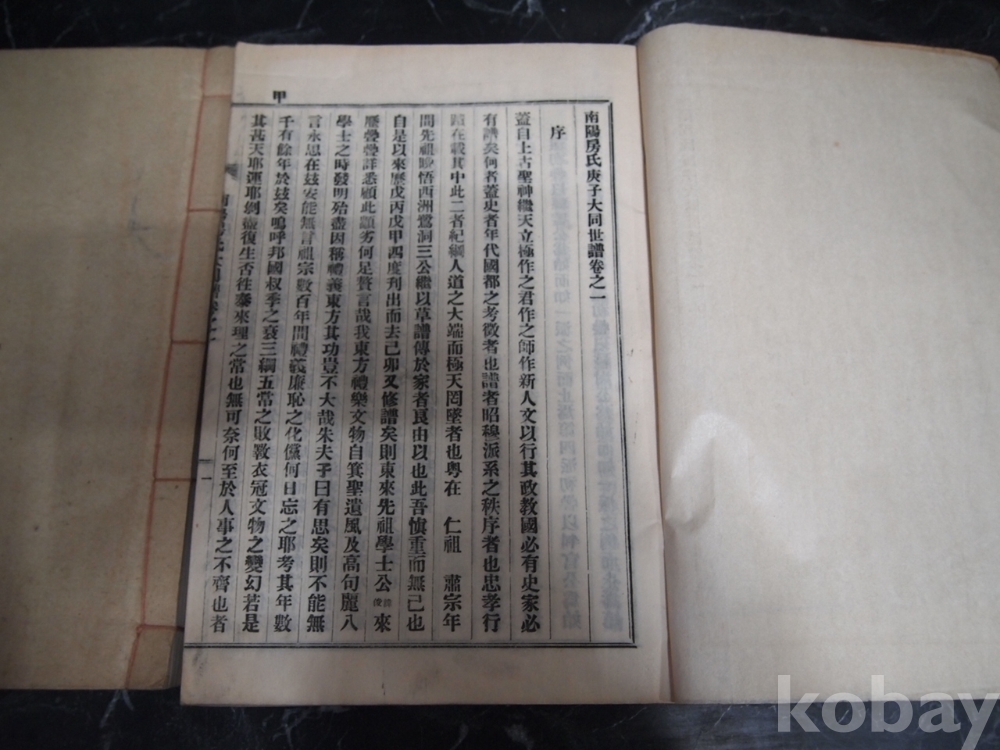 甲
南陽房氏庚子大同世譜卷之一
序
蓋自上古聖神繼天立極作之君作之師作新人文以行其政教國必有史家必
有譜矣何者蓋史者年代國都之考徵者也譜者昭穆派系之秩序者也忠孝行
蹟在載其中此二者紀綱人道之大端而極天罔墜者也粤在 仁祖 肅宗年
間先祖晚悟西洲鶯洞三公繼以草譜傳於家者良由以也此吾愼重而無己也
自是以來歷戊丙戊甲四度刋出而去己卯又修譜矣則東來先祖學士公 來
歷譽譽詳悉顧此謭劣何足贅言哉我東方禮樂文物自箕聖遺風及高句麗八
學士之時發明殆盡因稱禮義東方其功豈不大哉朱夫子曰有思矣則不能無
言永思在玆安能無言祖宗數百年間禮義廉恥之化儻何日忘之耶考其年數
千有餘年於玆矣嗚呼邦國叔季之衰三綱五常之敗斁衣冠文物之變幻若是
其甚天耶運耶剝盡復生否往泰來理之常也無可奈何至於人事之不齊也者
一
kobay